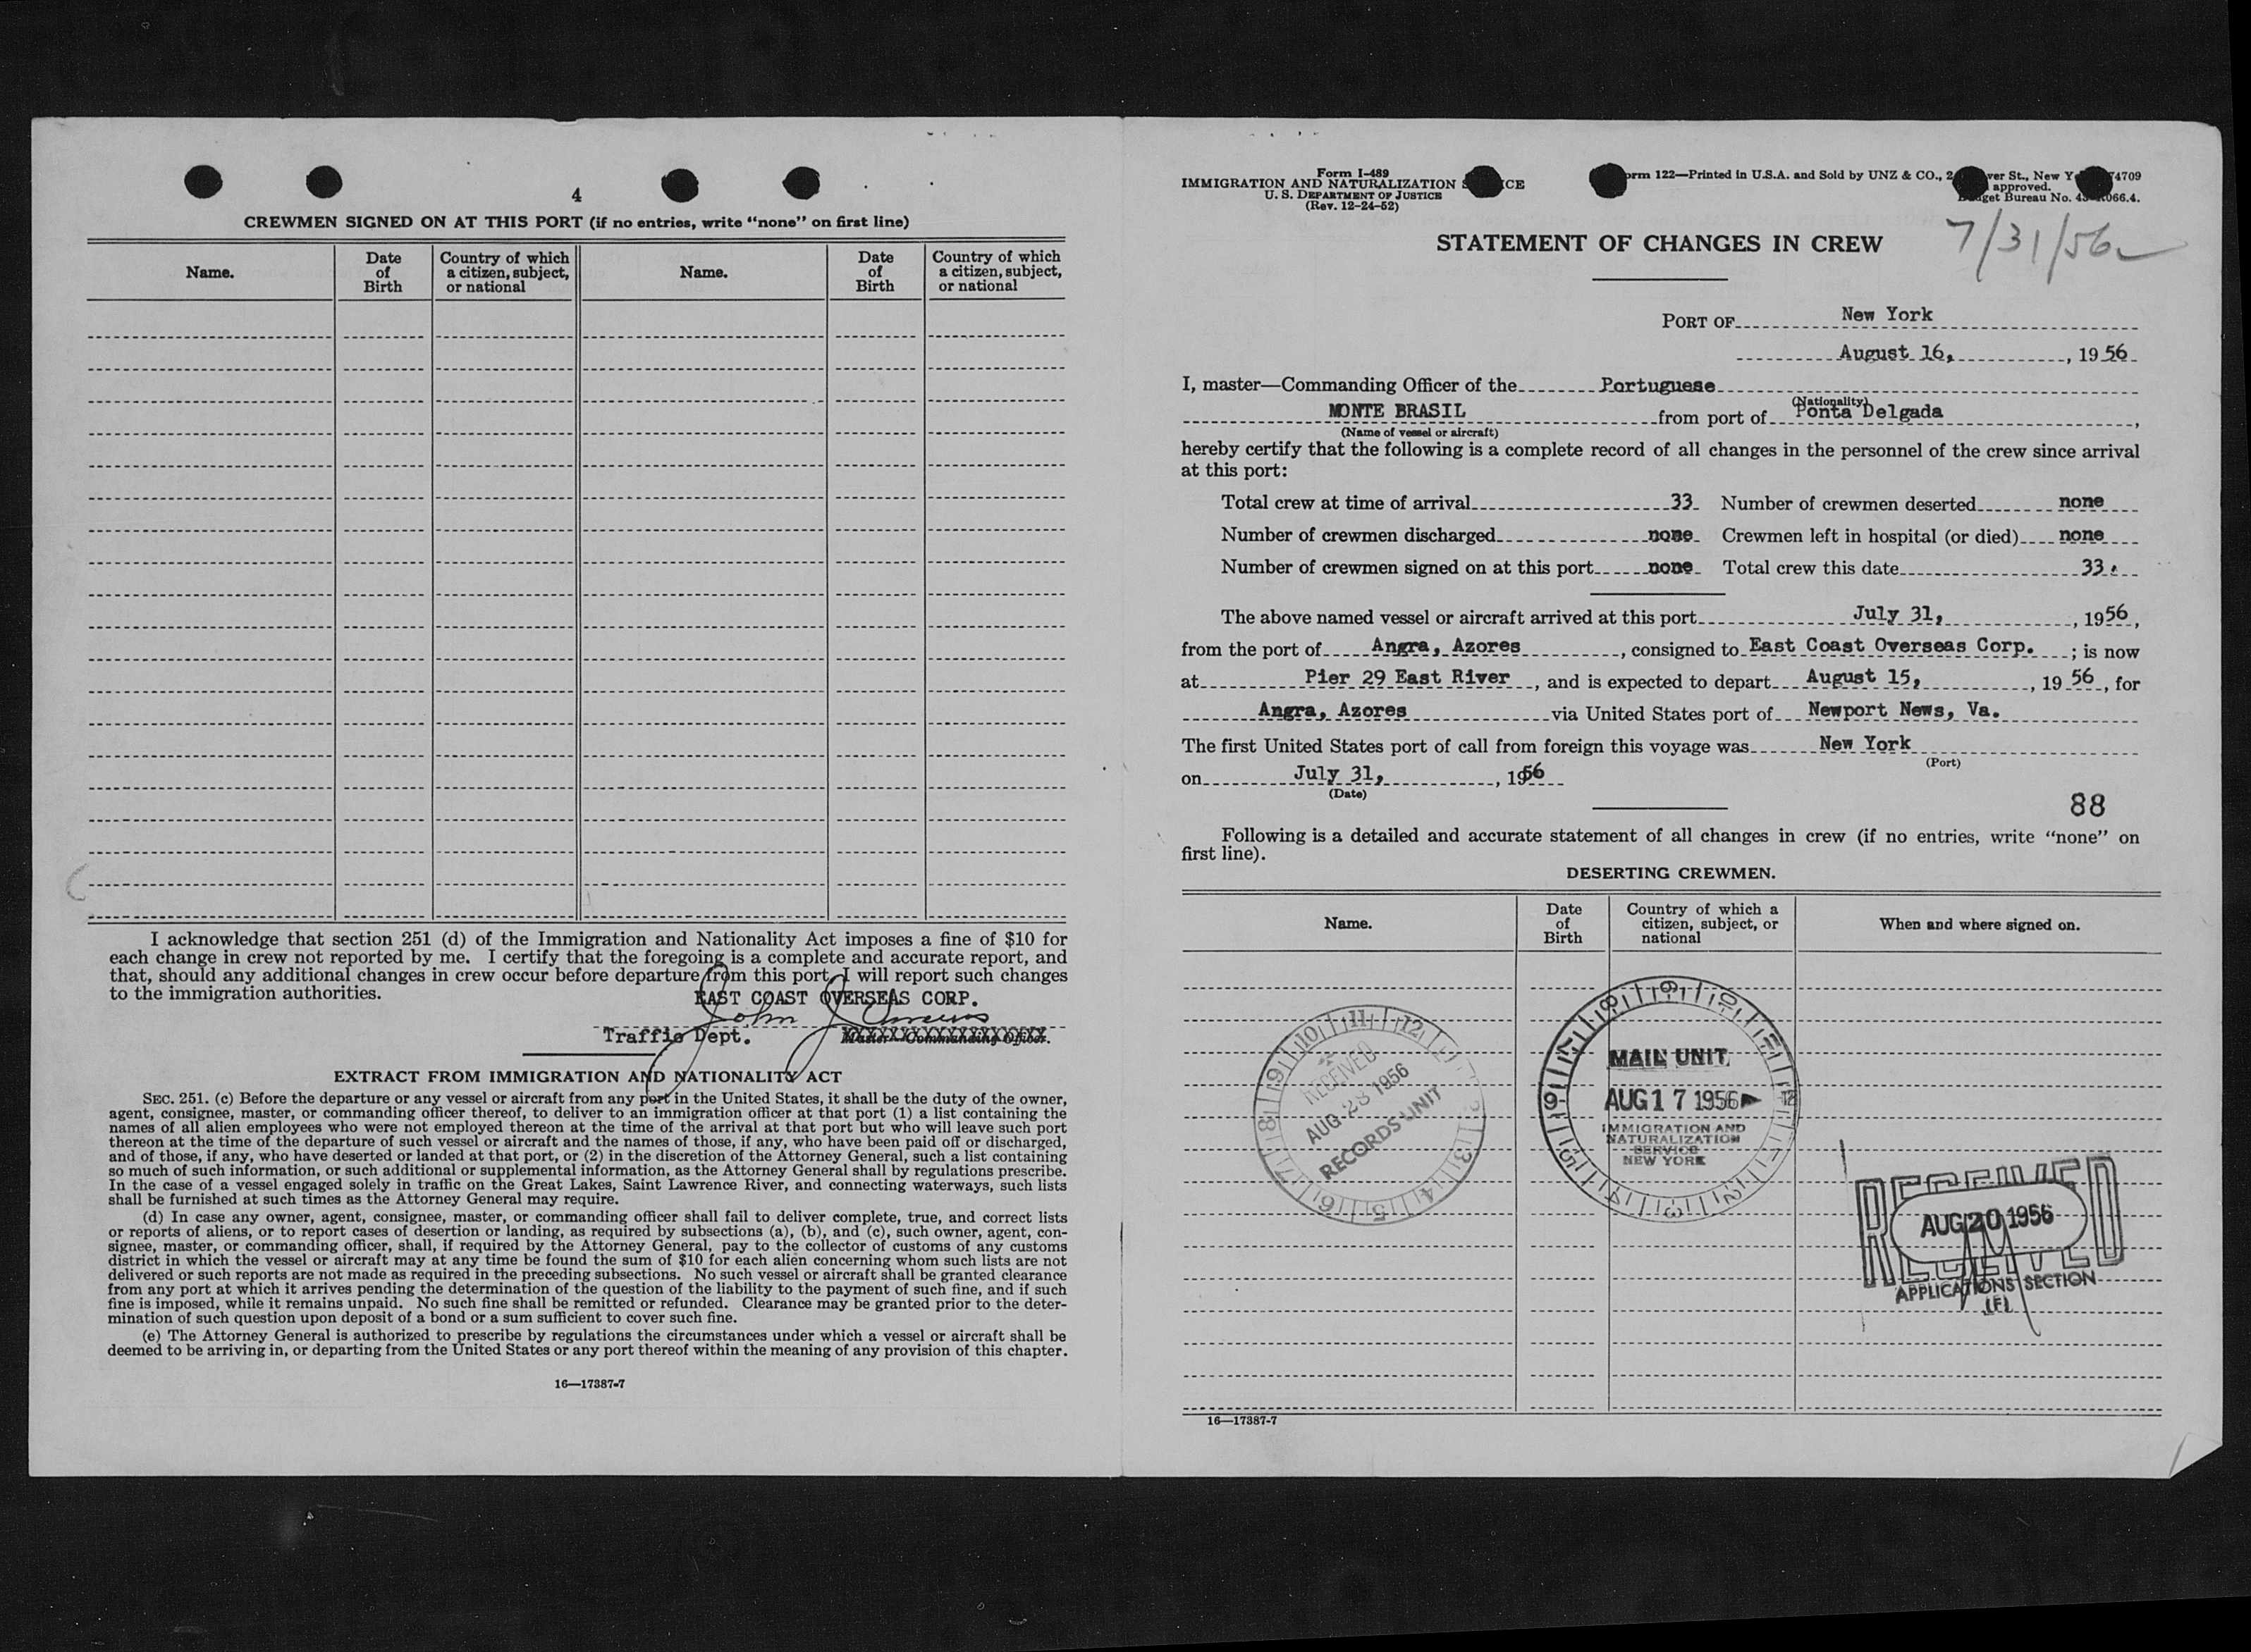 4
CREWMEN SIGNED ON AT THIS PORT (if no entries, write “none” on first line)
Name.
Date
of
Birth
Country of which
a citizen, subject,
or national
Name.
Date
of
Birth
Country of which
a citizen, subject,
or national
I acknowledge that section 251 (d) of the Immigration and Nationality Act imposes a fine of $10 for
each change in crew not reported by me. I certify that the foregoing is a complete and accurate report, and
that, should any additional changes in crew occur before departure from this port, I will report such changes
to the immigration authorities.
EAST COAST OVERSEAS CORP.
John J
Traffic Dept. XXXXXXXXXXXXXXXXXXX
Master—Commanding Officer.
EXTRACT FROM IMMIGRATION AND NATIONALITY ACT
SEC. 251. (c) Before the departure or any vessel or aircraft from any port in the United States, it shall be the duty of the owner,
agent, consignee, master, or commanding officer thereof, to deliver to an immigration officer at that port (1) a list containing the
names of all alien employees who were not employed thereon at the time of the arrival at that port but who will leave such port
thereon at the time of the departure of such vessel or aircraft and the names of those, if any, who have been paid off or discharged,
and of those, if any, who have deserted or landed at that port, or (2) in the discretion of the Attorney General, such a list containing
so much of such information, or such additional or supplemental information, as the Attorney General shall by regulations prescribe.
In the case of a vessel engaged solely in traffic on the Great Lakes, Saint Lawrence River, and connecting waterways, such lists
shall be furnished at such times as the Attorney General may require.
(d) In case any owner, agent, consignee, master, or commanding officer shall fail to deliver complete, true, and correct lists
or reports of aliens, or to report cases of desertion or landing, as required by subsections (a), (b), and (c), such owner, agent, con-
signee, master, or commanding officer, shall, if required by the Attorney General, pay to the collector of customs of any customs
district in which the vessel or aircraft may at any time be found the sum of $10 for each alien concerning whom such lists are not
delivered or such reports are not made as required in the preceding subsections. No such vessel or aircraft shall be granted clearance
from any port at which it arrives pending the determination of the question of the liability to the payment of such fine, and if such
fine is imposed, while it remains unpaid. No such fine shall be remitted or refunded. Clearance may be granted prior to the deter-
mination of such question upon deposit of a bond or a sum sufficient to cover such fine.
(e) The Attorney General is authorized to prescribe by regulations the circumstances under which a vessel or aircraft shall be
deemed to be arriving in, or departing from the United States or any port thereof within the meaning of any provision of this chapter.
16—17387-7
Form I-489
IMMIGRATION AND NATURALIZATION S ICE
U. S. DEPARTMENT OF JUSTICE
(Rev. 12-24-52)
orm 122—Printed in U.S.A. and Sold by UNZ & CO., 2 ver St., New Y 4709
approved.
get Bureau No. 43 066.4.
7/31/56
STATEMENT OF CHANGES IN CREW
PORT OF New York
August 16, , 19 56
I, master—Commanding Officer of the Portuguese
(Nationality)
MONTE BRASIL from port of Ponta Delgada ,
(Name of vessel or aircraft)
hereby certify that the following is a complete record of all changes in the personnel of the crew since arrival
at this port:
Total crew at time of arrival 33 Number of crewmen deserted none
Number of crewmen discharged none Crewmen left in hospital (or died) none
Number of crewmen signed on at this port none Total crew this date 33.
The above named vessel or aircraft arrived at this port July 31, , 1956,
from the port of Angra, Azores , consigned to East Coast Overseas Corp. ; is now
at Pier 29 East River , and is expected to depart August 15, , 19 56 , for
Angra, Azores via United States port of Newport News, Va.
The first United States port of call from foreign this voyage was New York
(Port)
on July 31, , 1956
(Date)
88
Following is a detailed and accurate statement of all changes in crew (if no entries, write “none” on
first line).
DESERTING CREWMEN.
Name.
Date
of
Birth
Country of which a
citizen, subject, or
national
When and where signed on.
RECEIVED
AUG 28 1956
RECORDS UNIT
MAIL UNIT
AUG 17 1956
IMMIGRATION AND
NATURALIZATION
SERVICE
NEW YORK
RECEIVED
AUG 20 1956
RECEIVED
APPLICATIONS SECTION
(F)
16—17387-7